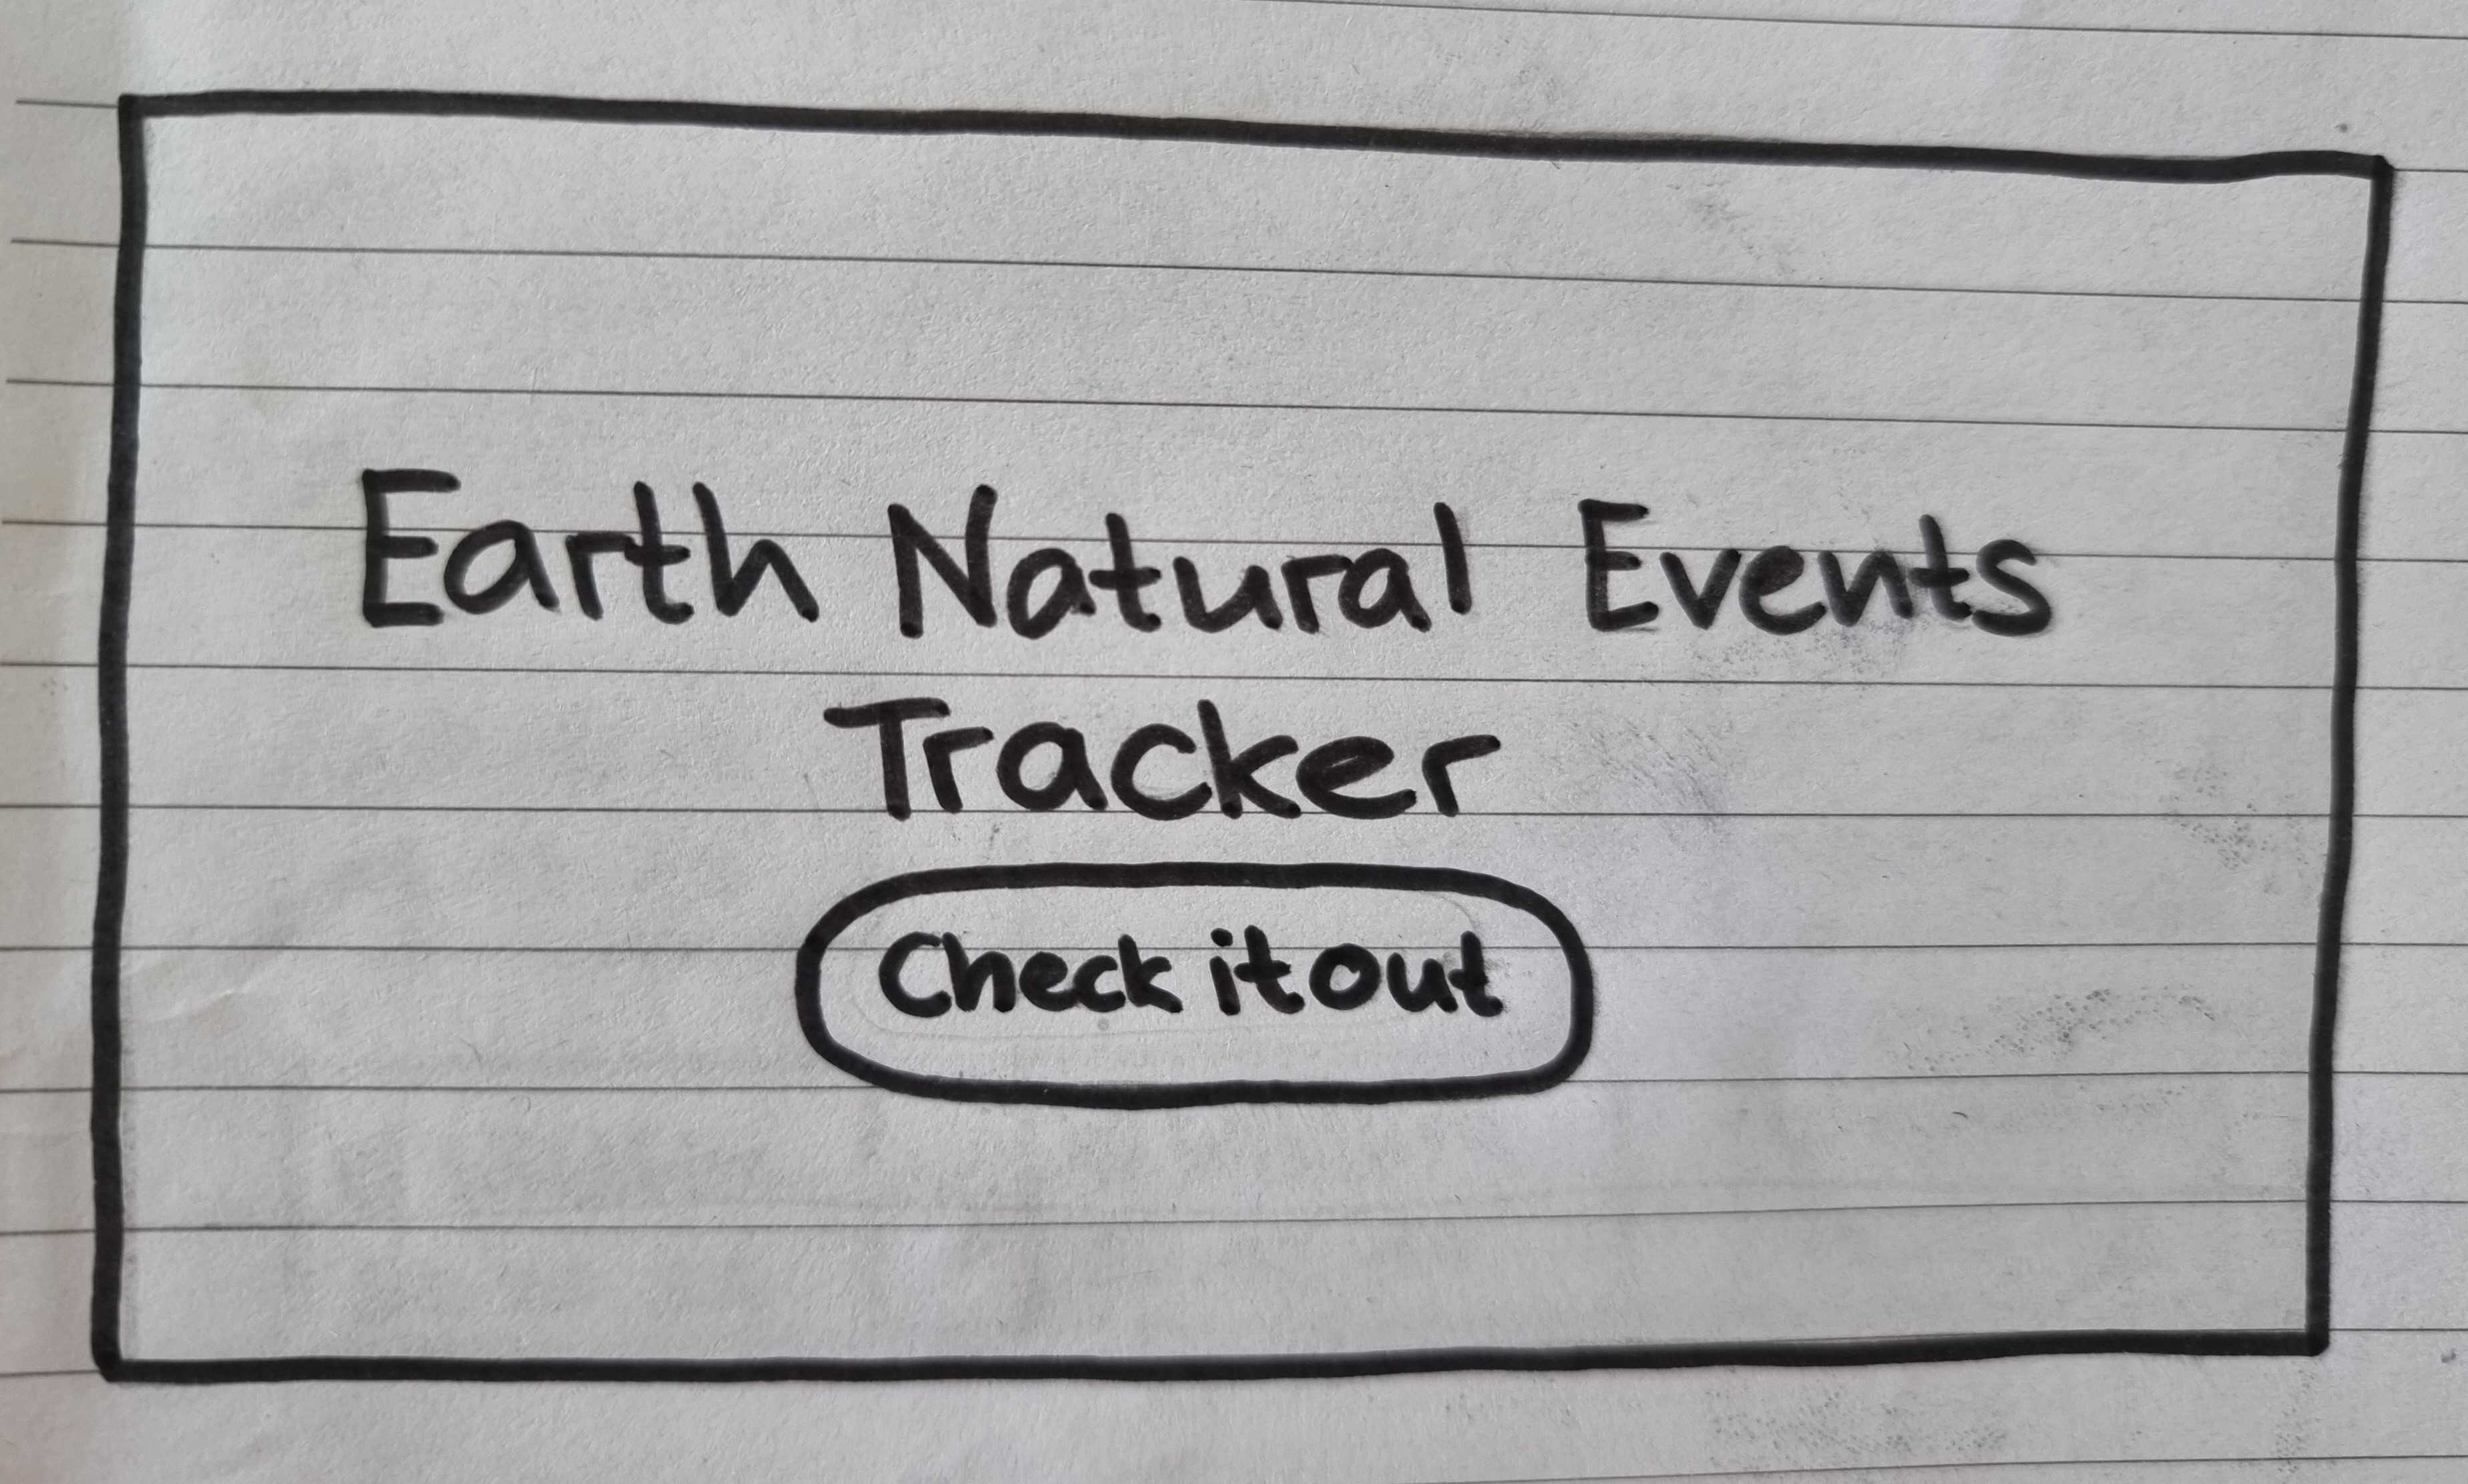 Earth Natural Events
Tracker
Check it out